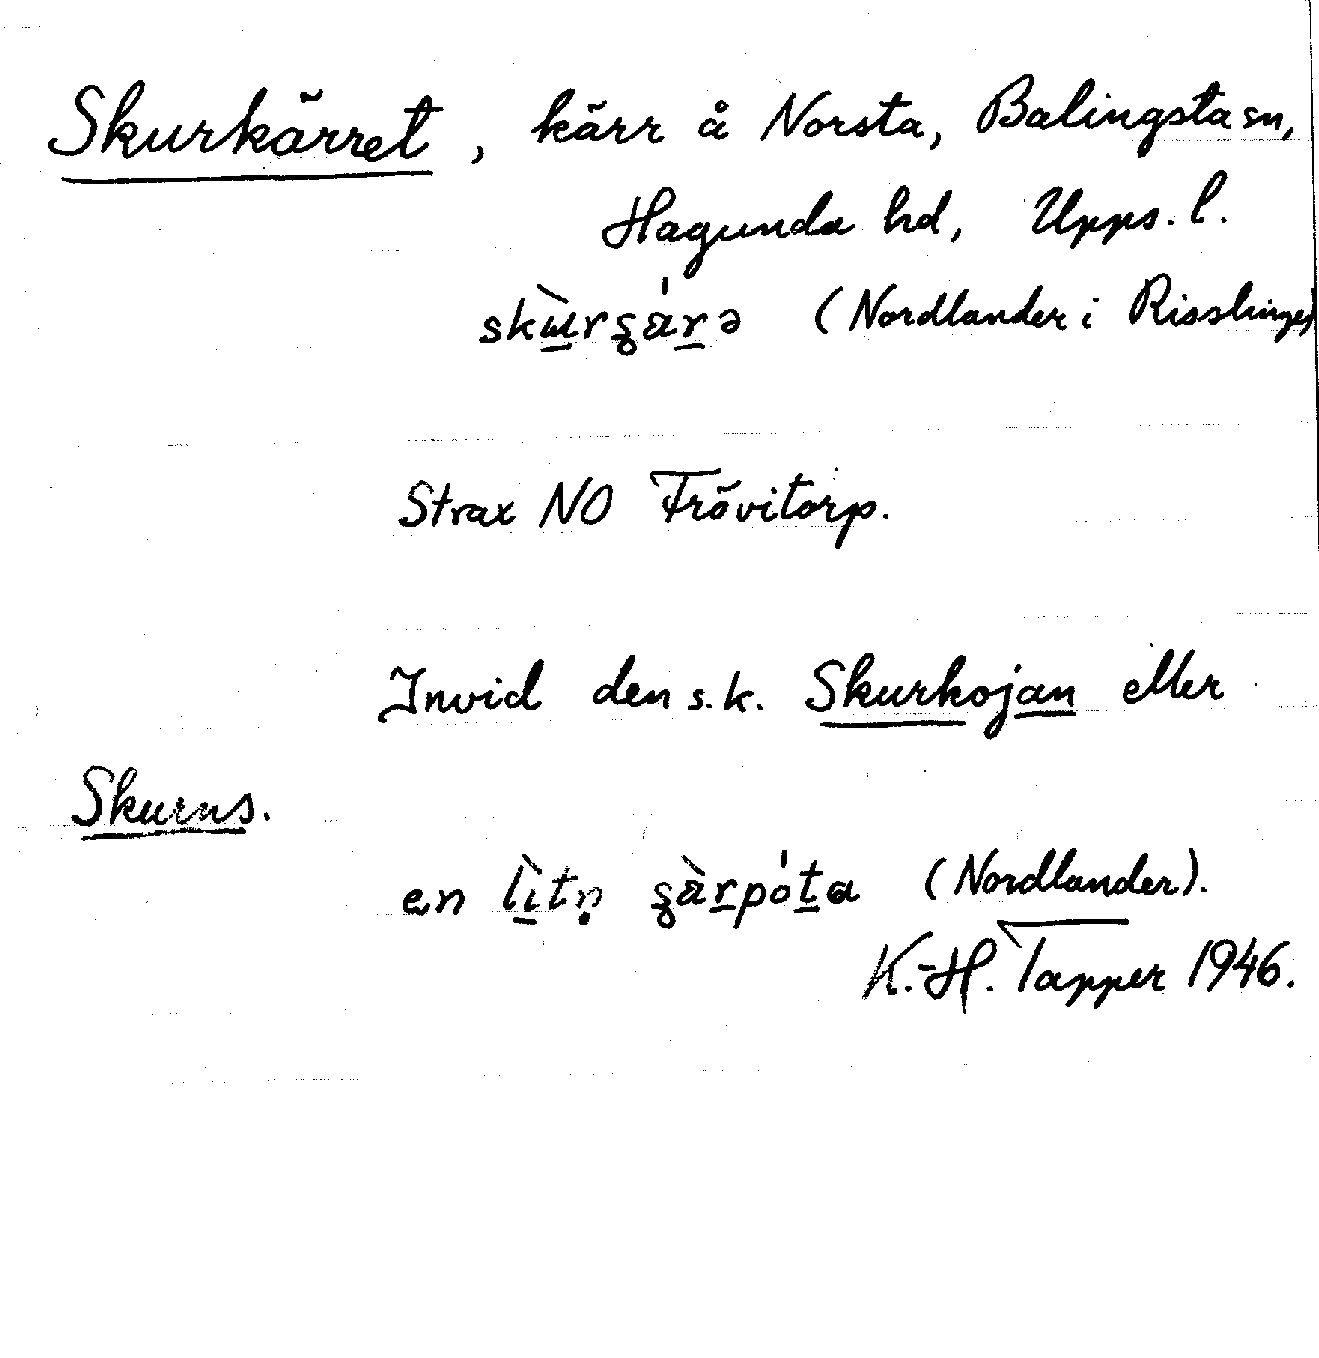 Skurkärret, kärr å Norsta, Balingsta sn,
Hagunda hd, Upps. l.
skùrʂárə (Nordlander i Risslinge)
Strax NO Frövitorp.
Invid den s.k. Skurkojan eller
Skurns.
en lìtn̥ ʂàrpóta (Nordlander).
K.-H. Tapper 1946.